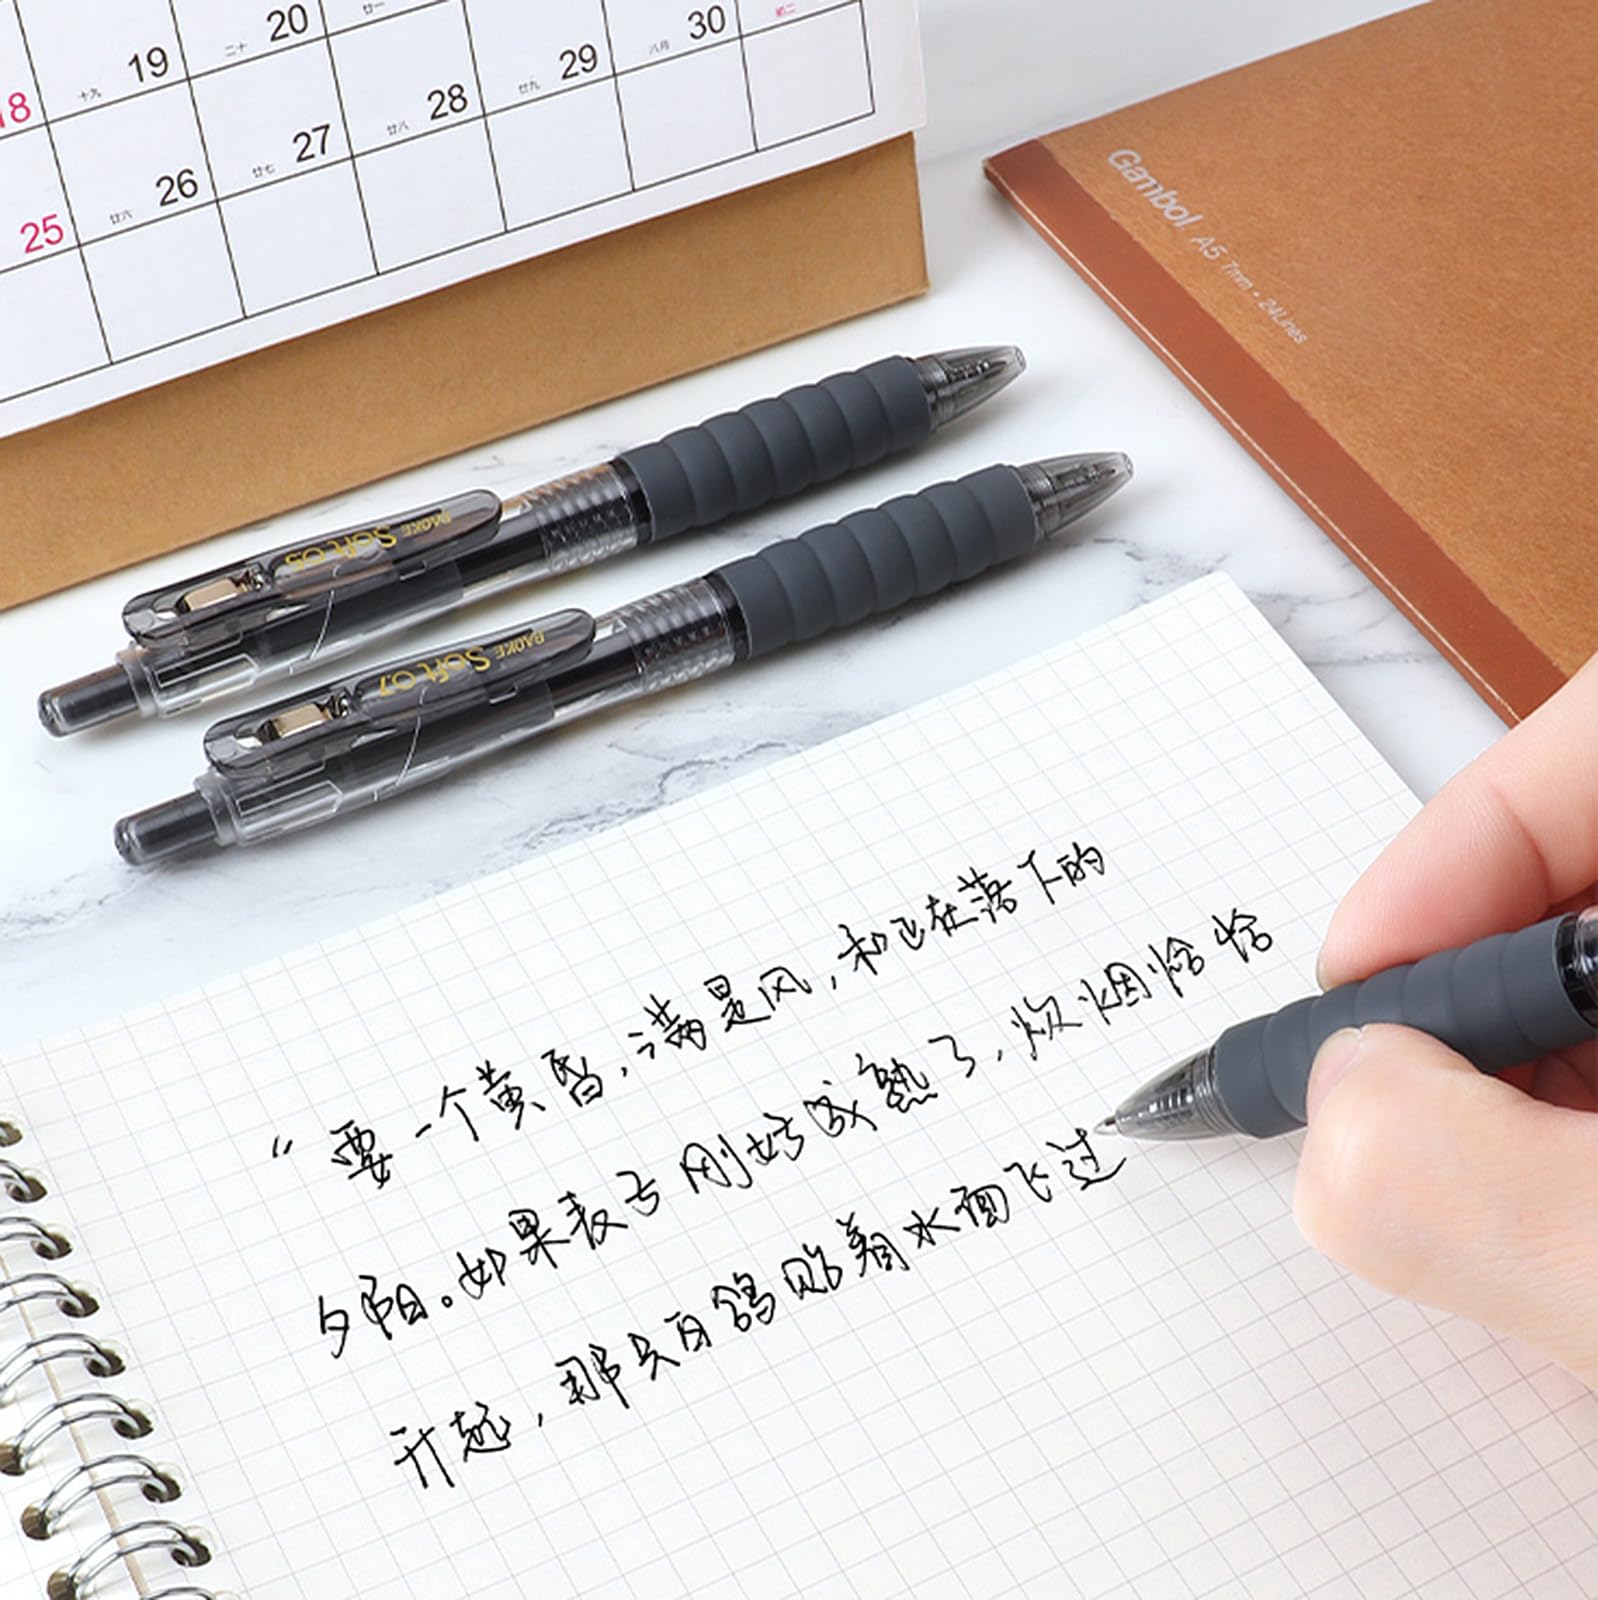 20
廿一
30
初二
18
十九
19
二十
廿九
29
八月
25
廿六
26
廿七
27
廿八
28
Gambol A5 7mm · 24Lines
BAOKE Soft 0.5
BAOKE Soft 0.7
“要一个黄昏，满是风，和正在落下的
夕阳。如果麦子刚好成熟了，炊烟恰恰
升起，那只白鸽贴着水面飞过